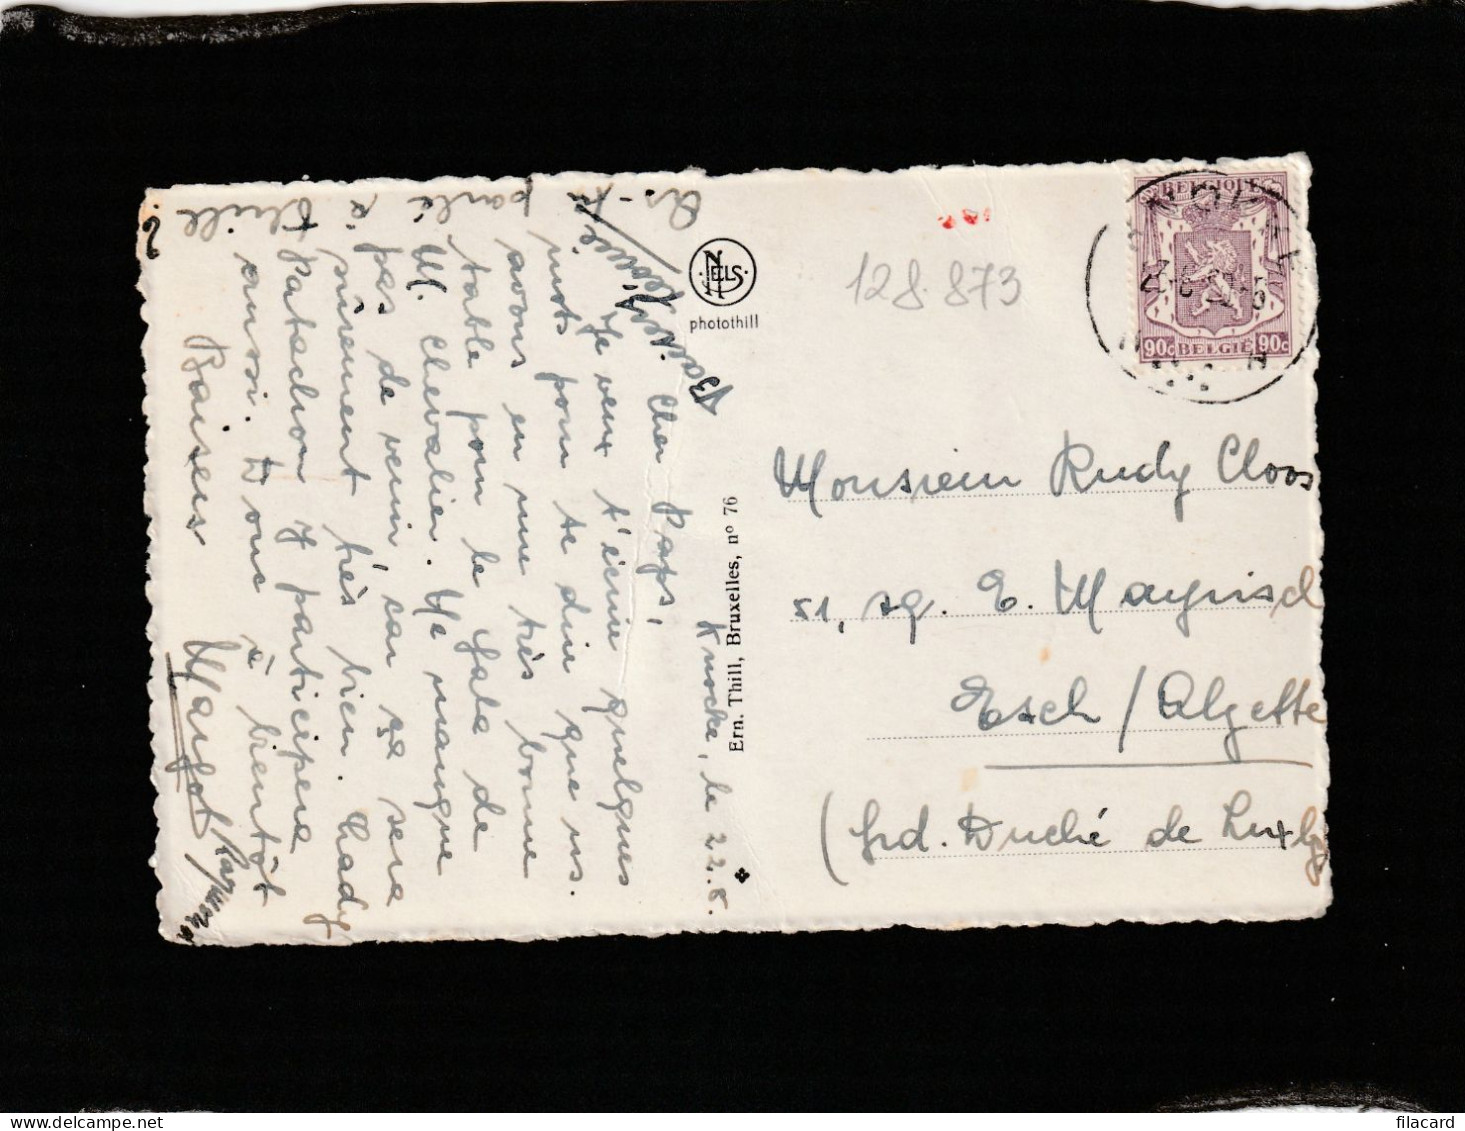 Knocke, le 22.8.
Cher Paps,
Je veux t'écrire quelques
mots pour te dire que ns.
avons eu une très bonne
table pour le Gala de
M. Chevalier. Ne manque
pas de venir car ça sera
sûrement très bien. Chady
Patachon y participera
aussi. Donc à bientôt
Baisers Margot
As-tu
parlé à
Thill
?
Baisers
NELS
photothill
Ern. Thill, Bruxelles, nº 76
128.873
BELGIQUE
90c BELGIË 90c
Monsieur Rudy Cloos
51, E. Mayrisch
Esch / Alzette
(Grd. Duché de Luxbg
filacard